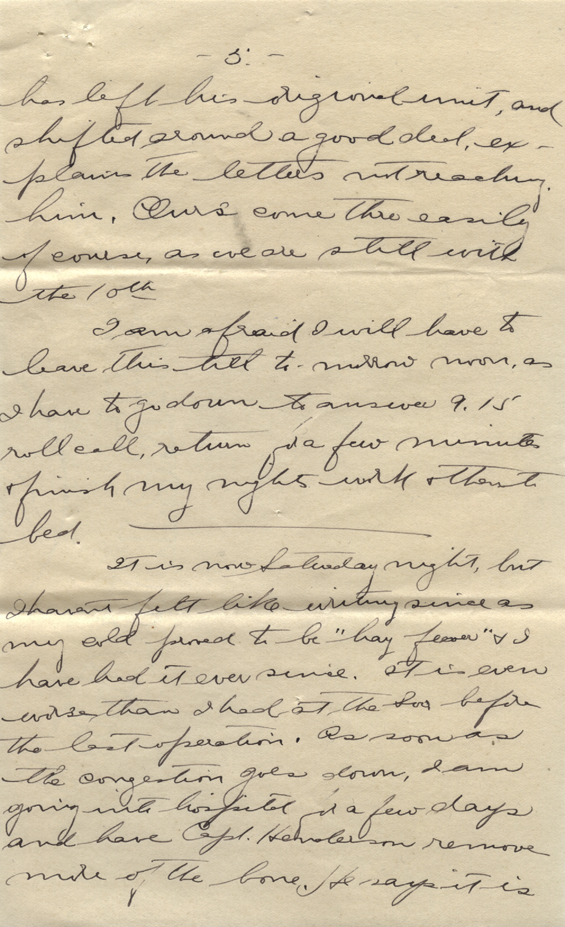 - 5. -
has left his origional unit, and
shifted around a good deal, ex-
plains the letters not reaching
him. Our's come thro easily
of course, as we are still with
the 10th
I am afraid I will have to
leave this till to-morrow noon, as
I have to go down to answer 9.15
roll call, return for a few minutes
& finish my nights work & then to
bed.
It is now Saturday night, but
I haven't felt like writing since as
my cold proved to be "hay feever" & I
have had it ever since. It is even
worse than I had at the Soo before
the last operation. As soon as
the congestion goes down, I am
going into hospital for a few days
and have Capt. Henderson remove
more of the bone. He says it is